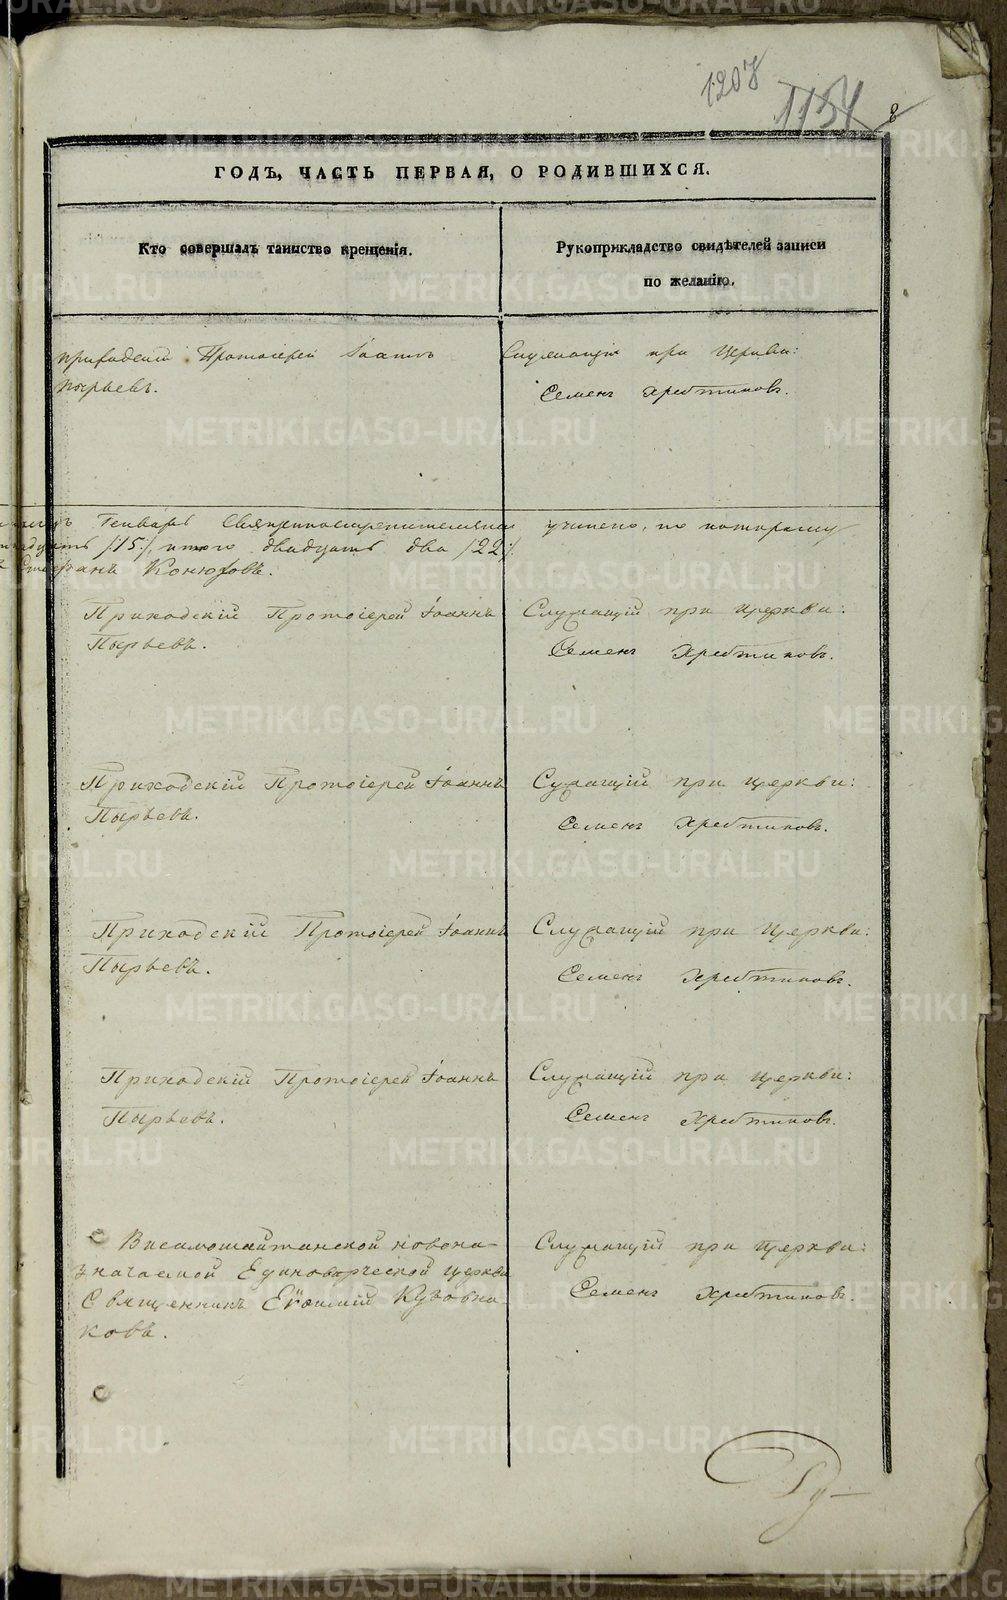 1208
1154
8
ГОДЪ, ЧАСТЬ ПЕРВАЯ, О РОДИВШИХСЯ.
Кто совершалъ таинство крещенія.
Рукоприкладство свидѣтелей записи
по желанію.
Приходскій Протоіерей Іоаннъ
Пырьевъ.
Служащій при Церкви:
Семенъ Хребтиковъ.
Генварь учинено, по которому
/15/, итого двадцать два /22/.
Конюховъ.
Приходскій Протоіерей Іоаннъ
Пырьевъ.
Служащій при Церкви:
Семенъ Хребтиковъ.
Приходскій Протоіерей Іоаннъ
Пырьевъ.
Сужащій при Церкви:
Семенъ Хребтиковъ.
Приходскій Протоіерей Іоаннъ
Пырьевъ.
Служащій при Церкви:
Семенъ Хребтиковъ.
Приходскій Протоіерей Іоаннъ
Пырьевъ.
Служащій при Церкви:
Семенъ Хребтиковъ.
Висимошайтанской новона-
значаемой Единоверческой Церкви
Священникъ Евѳимій Кузовни-
ковъ.
Служащій при Церкви:
Семенъ Хребтиковъ.
METRIKI.GASO-URAL.RU